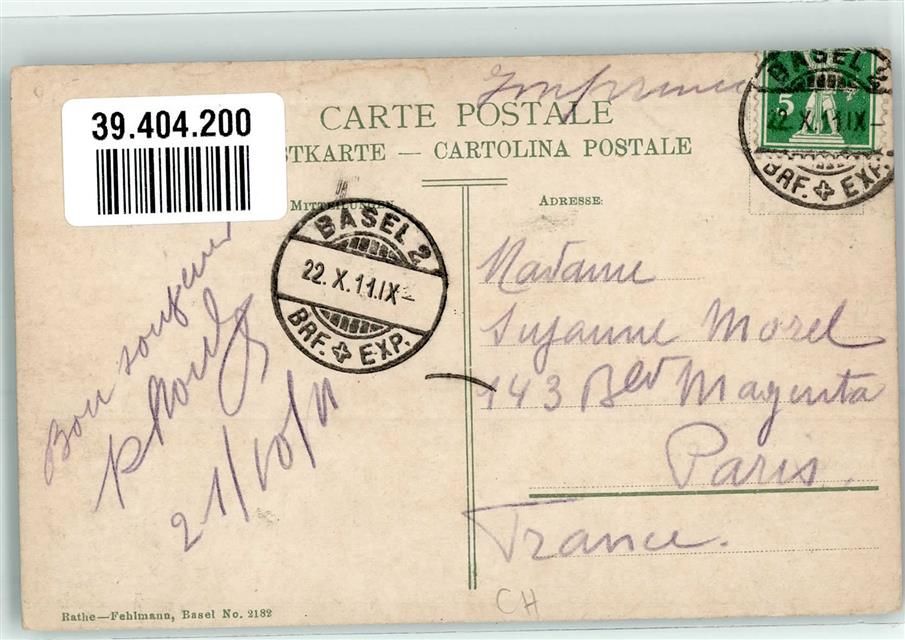 39.404.200
Imprimé
CARTE POSTALE
STKARTE — CARTOLINA POSTALE
MITTEILUNGEN
ADRESSE:
BASEL 2
22.X.11.IX-
BRF. EXP.
5
BASEL 2
22.X.11.IX-
BRF. EXP.
Bon souvenir
21/10/11
Madame
Suzanne Morel
143 Blvd Magenta
Paris.
France.
CH
Rathe—Fehlmann, Basel No. 2182